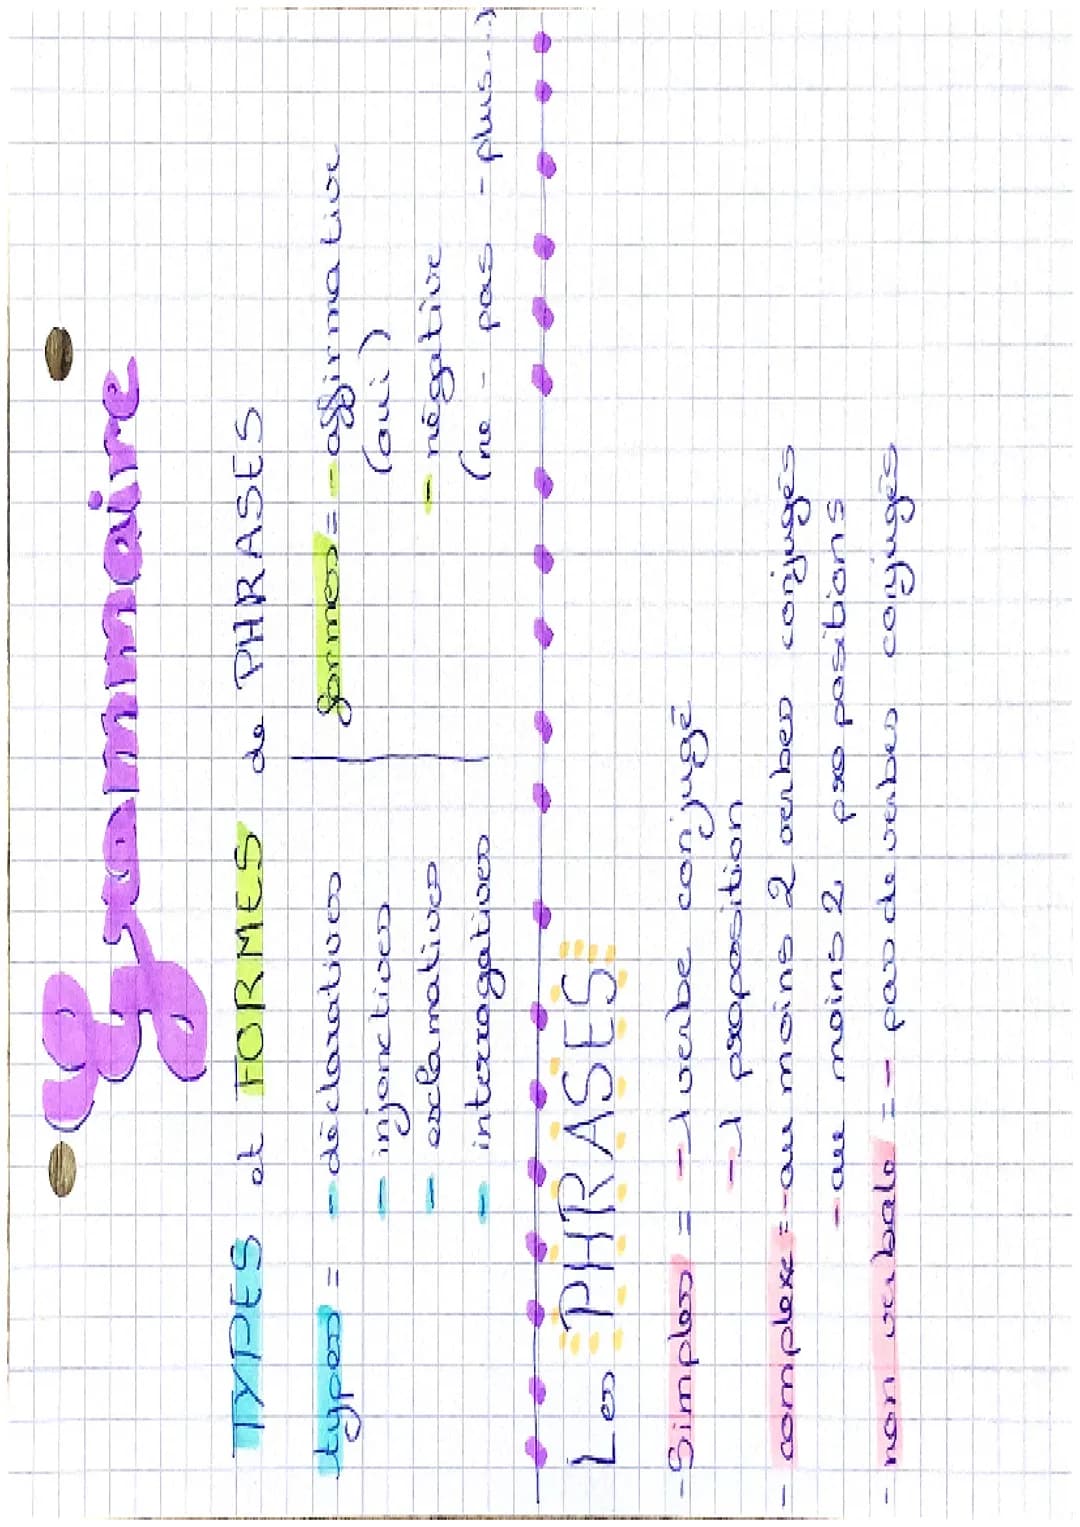 Grammaire
TYPES et FORMES de PHRASES
types = - déclaratives
- injonctives
- exclamatives
- interrogatives
formes = - affirmative
(oui)
- négative
(ne - pas - plus...)
Les PHRASES
- Simples = - 1 verbe conjugé
- 1 proposition
- complexe = - au moins 2 verbes conjugés
- au moins 2 propositions
- non verbale = - pas de verbes conjugés